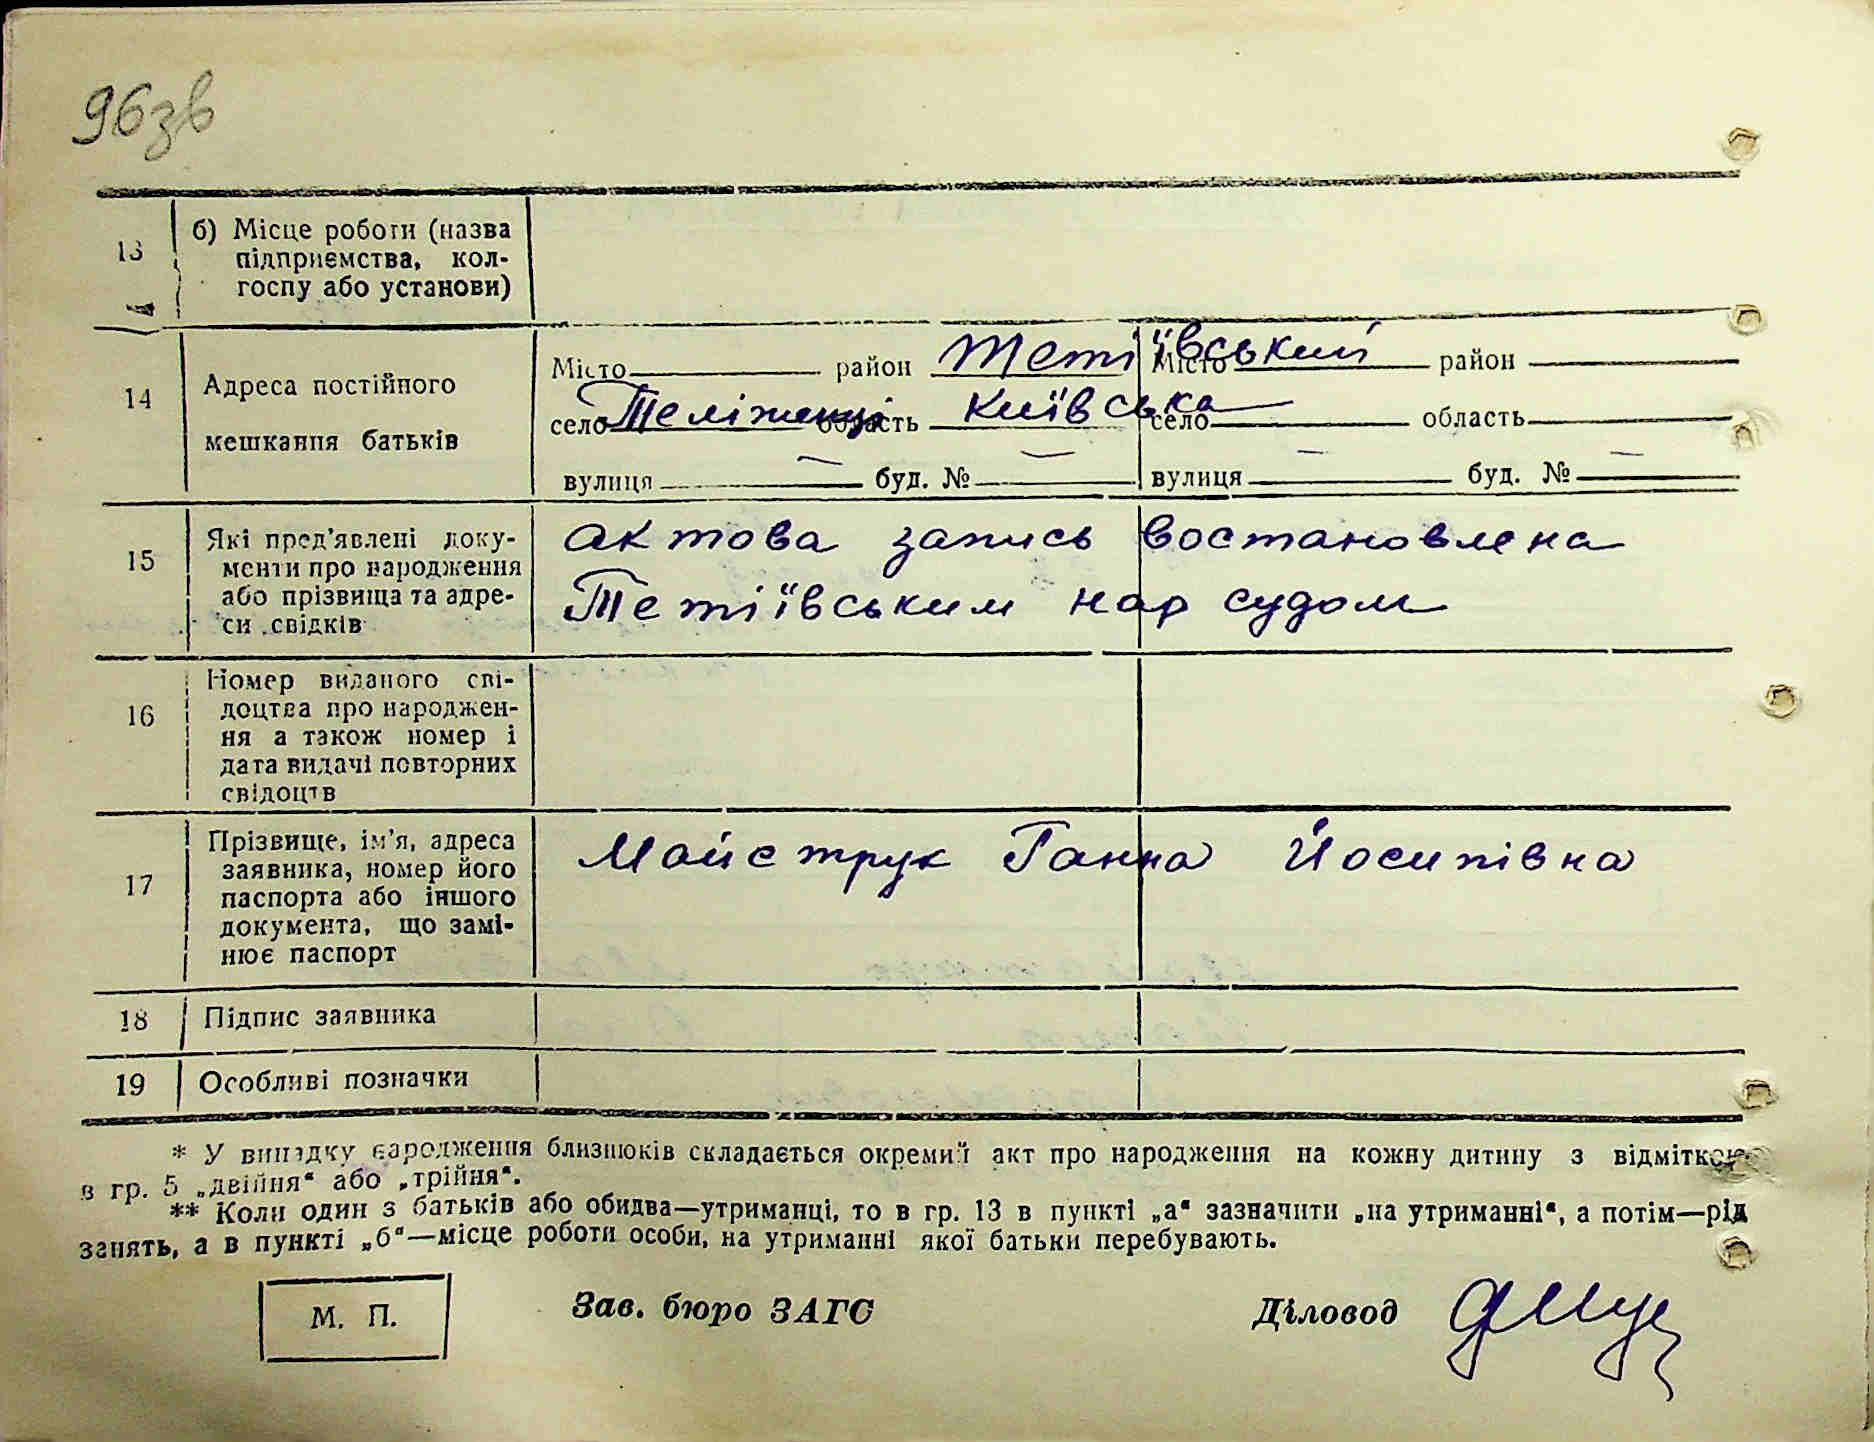 96зв
13 б) Місце роботи (назва
підприємства, кол-
госпу або установи)
14 Адреса постійного
мешкання батьків
Місто район Тетіївський Місто район
село Теліжинці область Київська село область
вулиця — буд. № — вулиця — буд. № —
15 Які пред'явлені доку-
менти про народження
або прізвища та адре-
си свідків
актова запись востановлена
Тетіївським нар судом
16 Номер виданого сві-
доцтва про народжен-
ня а також номер і
дата видачі повторних
свідоцтв
17 Прізвище, ім'я, адреса
заявника, номер його
паспорта або іншого
документа, що замі-
нює паспорт
Майструк Ганна Йосипівна
18 Підпис заявника
19 Особливі позначки
* У випадку народження близнюків складається окремий акт про народження на кожну дитину з відміткою
в гр. 5 „двійня“ або „трійня“.
** Коли один з батьків або обидва—утриманці, то в гр. 13 в пункті „а“ зазначити „на утриманні“, а потім—рід
занять, а в пункті „б“—місце роботи особи, на утриманні якої батьки перебувають.
М. П. Зав. бюро ЗАГС Діловод